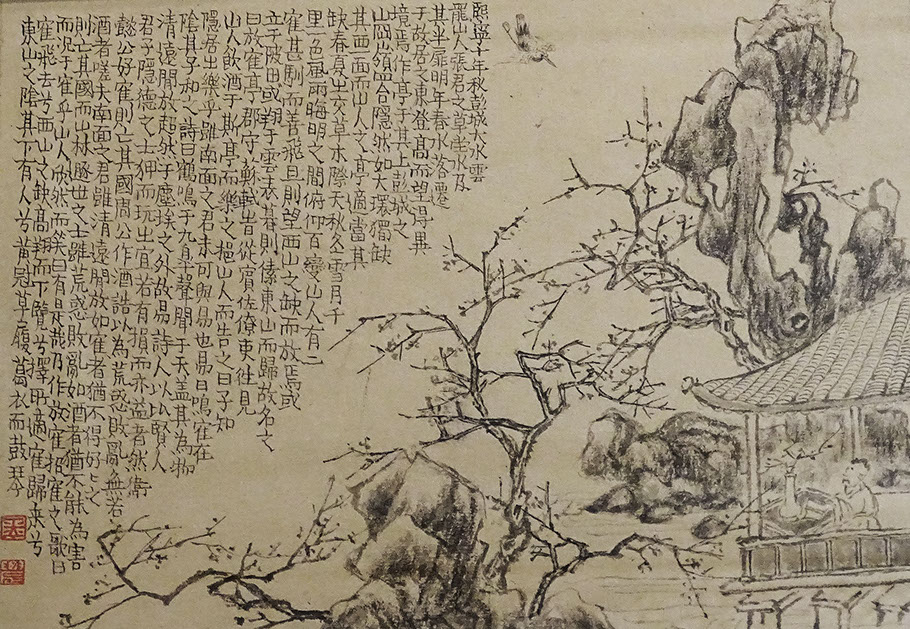 熙寧十年秋彭城大水雲
龍山人張君之草堂水及
其半扉明年春水落遷
于故居之東登高而望得異
境焉作亭于其上彭城之
山岡嶺四合隱然如大環獨缺
其西面而山人之亭適當其
缺春夏之交草木際天秋冬雪月千
里一色風雨晦明之間俯仰百變山人有二
寉甚馴而善飛旦則望西山之缺而放焉或
立于陂田或翔于雲表暮則傃東山而歸故名之
曰放寉亭郡守蘇軾時從賓佐僚吏往見
山人飲酒于斯亭而樂之挹山人而告之曰子知
隱居之樂乎雖南面之君未可與易也易曰鳴寉在
陰其子和之詩曰鶴鳴于九皋聲聞于天蓋其為物
清遠閒放超然于塵埃之外故易詩人以比賢人
君子隱德之士狎而玩之宜若有損而亦益者然衛
懿公好寉則亡其國周公作酒誥以為荒惑敗亂無若
酒者嗟夫南面之君雖清遠閒放如寉者猶不得好〻之
則亡其國而山林遯世之士雖荒惑敗亂如酒者猶不能為害
而況于寉乎山人欣然而笑曰有是哉乃作放寉招寉之歌曰
寉飛去兮西山之缺高翔而下覽兮擇所適寉歸來兮
東山之陰其下有人兮黃冠草履葛衣而鼓琴